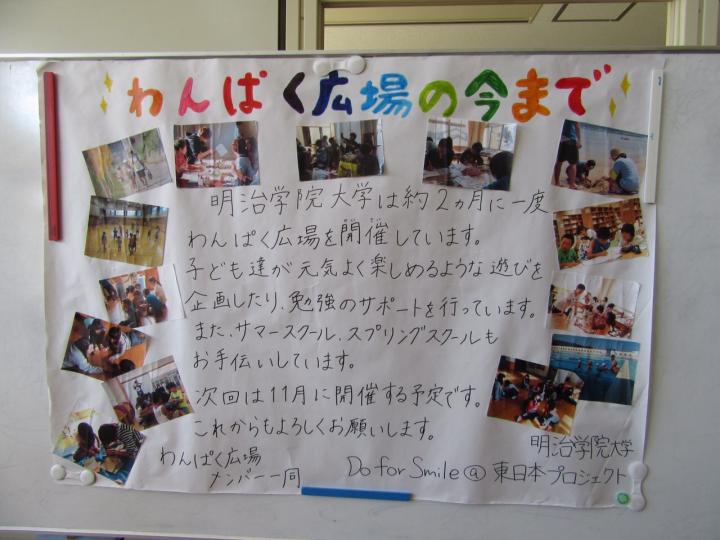 わんぱく広場の今まで
明治学院大学は約2ヵ月に一度
わんぱく広場を開催しています。
子ども達が元気よく楽しめるような遊びを
企画したり、勉強のサポートを行っています。
また、サマースクール、スプリングスクールも
お手伝いしています。
次回は11月に開催する予定です。
これからもよろしくお願いします。
わんぱく広場
メンバー一同
明治学院大学
Do for Smile@東日本プロジェクト